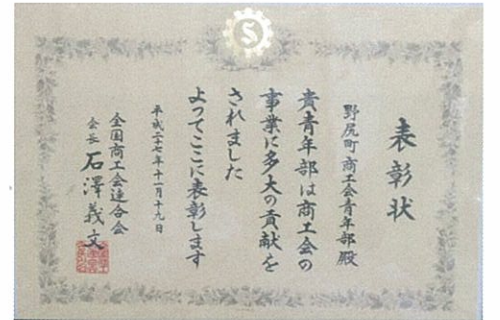 表彰状
野尻町商工会青年部殿
貴青年部は商工会の
事業に多大の貢献を
されました
よってここに表彰します
平成二十七年十一月十九日
全国商工会連合会
会長 石澤義文